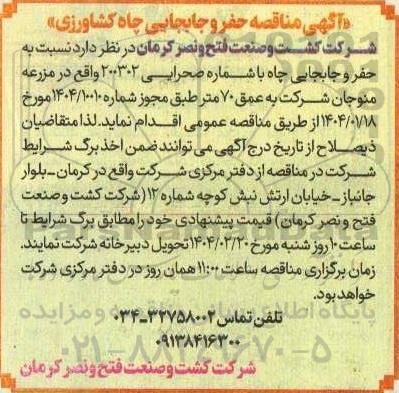 «آگهی مناقصه حفر و جابجایی چاه کشاورزی»
شرکت کشت و صنعت فتح و نصر کرمان در نظر دارد نسبت به
حفر و جابجایی چاه با شماره صحرایی ۲۰۰۳۰۲ واقع در مزرعه
منوجان شرکت به عمق ۷۰ متر طبق مجوز شماره ۱۴۰۴/۱۰۰۱۰ مورخ
۱۴۰۴/۰۱/۱۸ از طریق مناقصه عمومی اقدام نماید. لذا متقاضیان
ذیصلاح از تاریخ درج آگهی می توانند ضمن اخذ برگ شرایط
شرکت در مناقصه از دفتر مرکزی شرکت واقع در کرمان - بلوار
جانباز - خیابان ارتش نبش کوچه شماره ۱۲ (شرکت کشت و صنعت
فتح و نصر کرمان) قیمت پیشنهادی خود را مطابق برگ شرایط تا
ساعت ۱۰ روز شنبه مورخ ۱۴۰۴/۰۲/۲۰ تحویل دبیرخانه شرکت نمایند.
زمان برگزاری مناقصه ساعت ۱۱:۰۰ همان روز در دفتر مرکزی شرکت
خواهد بود.
تلفن تماس ۳۲۷۵۸۰۰۲-۰۳۴
۰۹۱۳۸۴۱۶۳۰۰
شرکت کشت و صنعت فتح و نصر کرمان
پایگاه اطلاع رسانی مناقصه و مزایده
۰۲۱-۸۸۳۴۹۶۷۰-۵